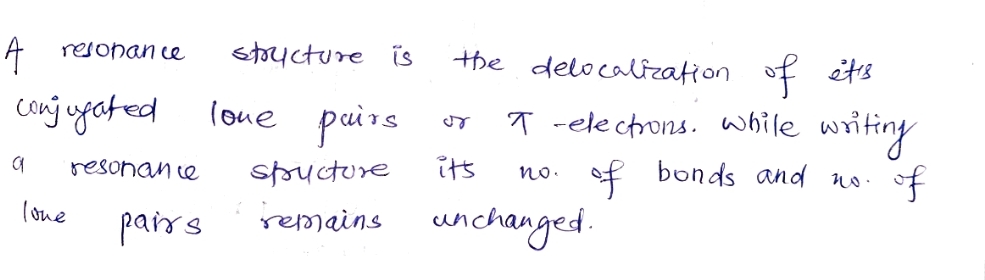 A resonance structure is the delocalization of its
conjugated lone pairs or π-electrons. While writing
a resonance structure its no. of bonds and no. of
lone pairs remains unchanged.